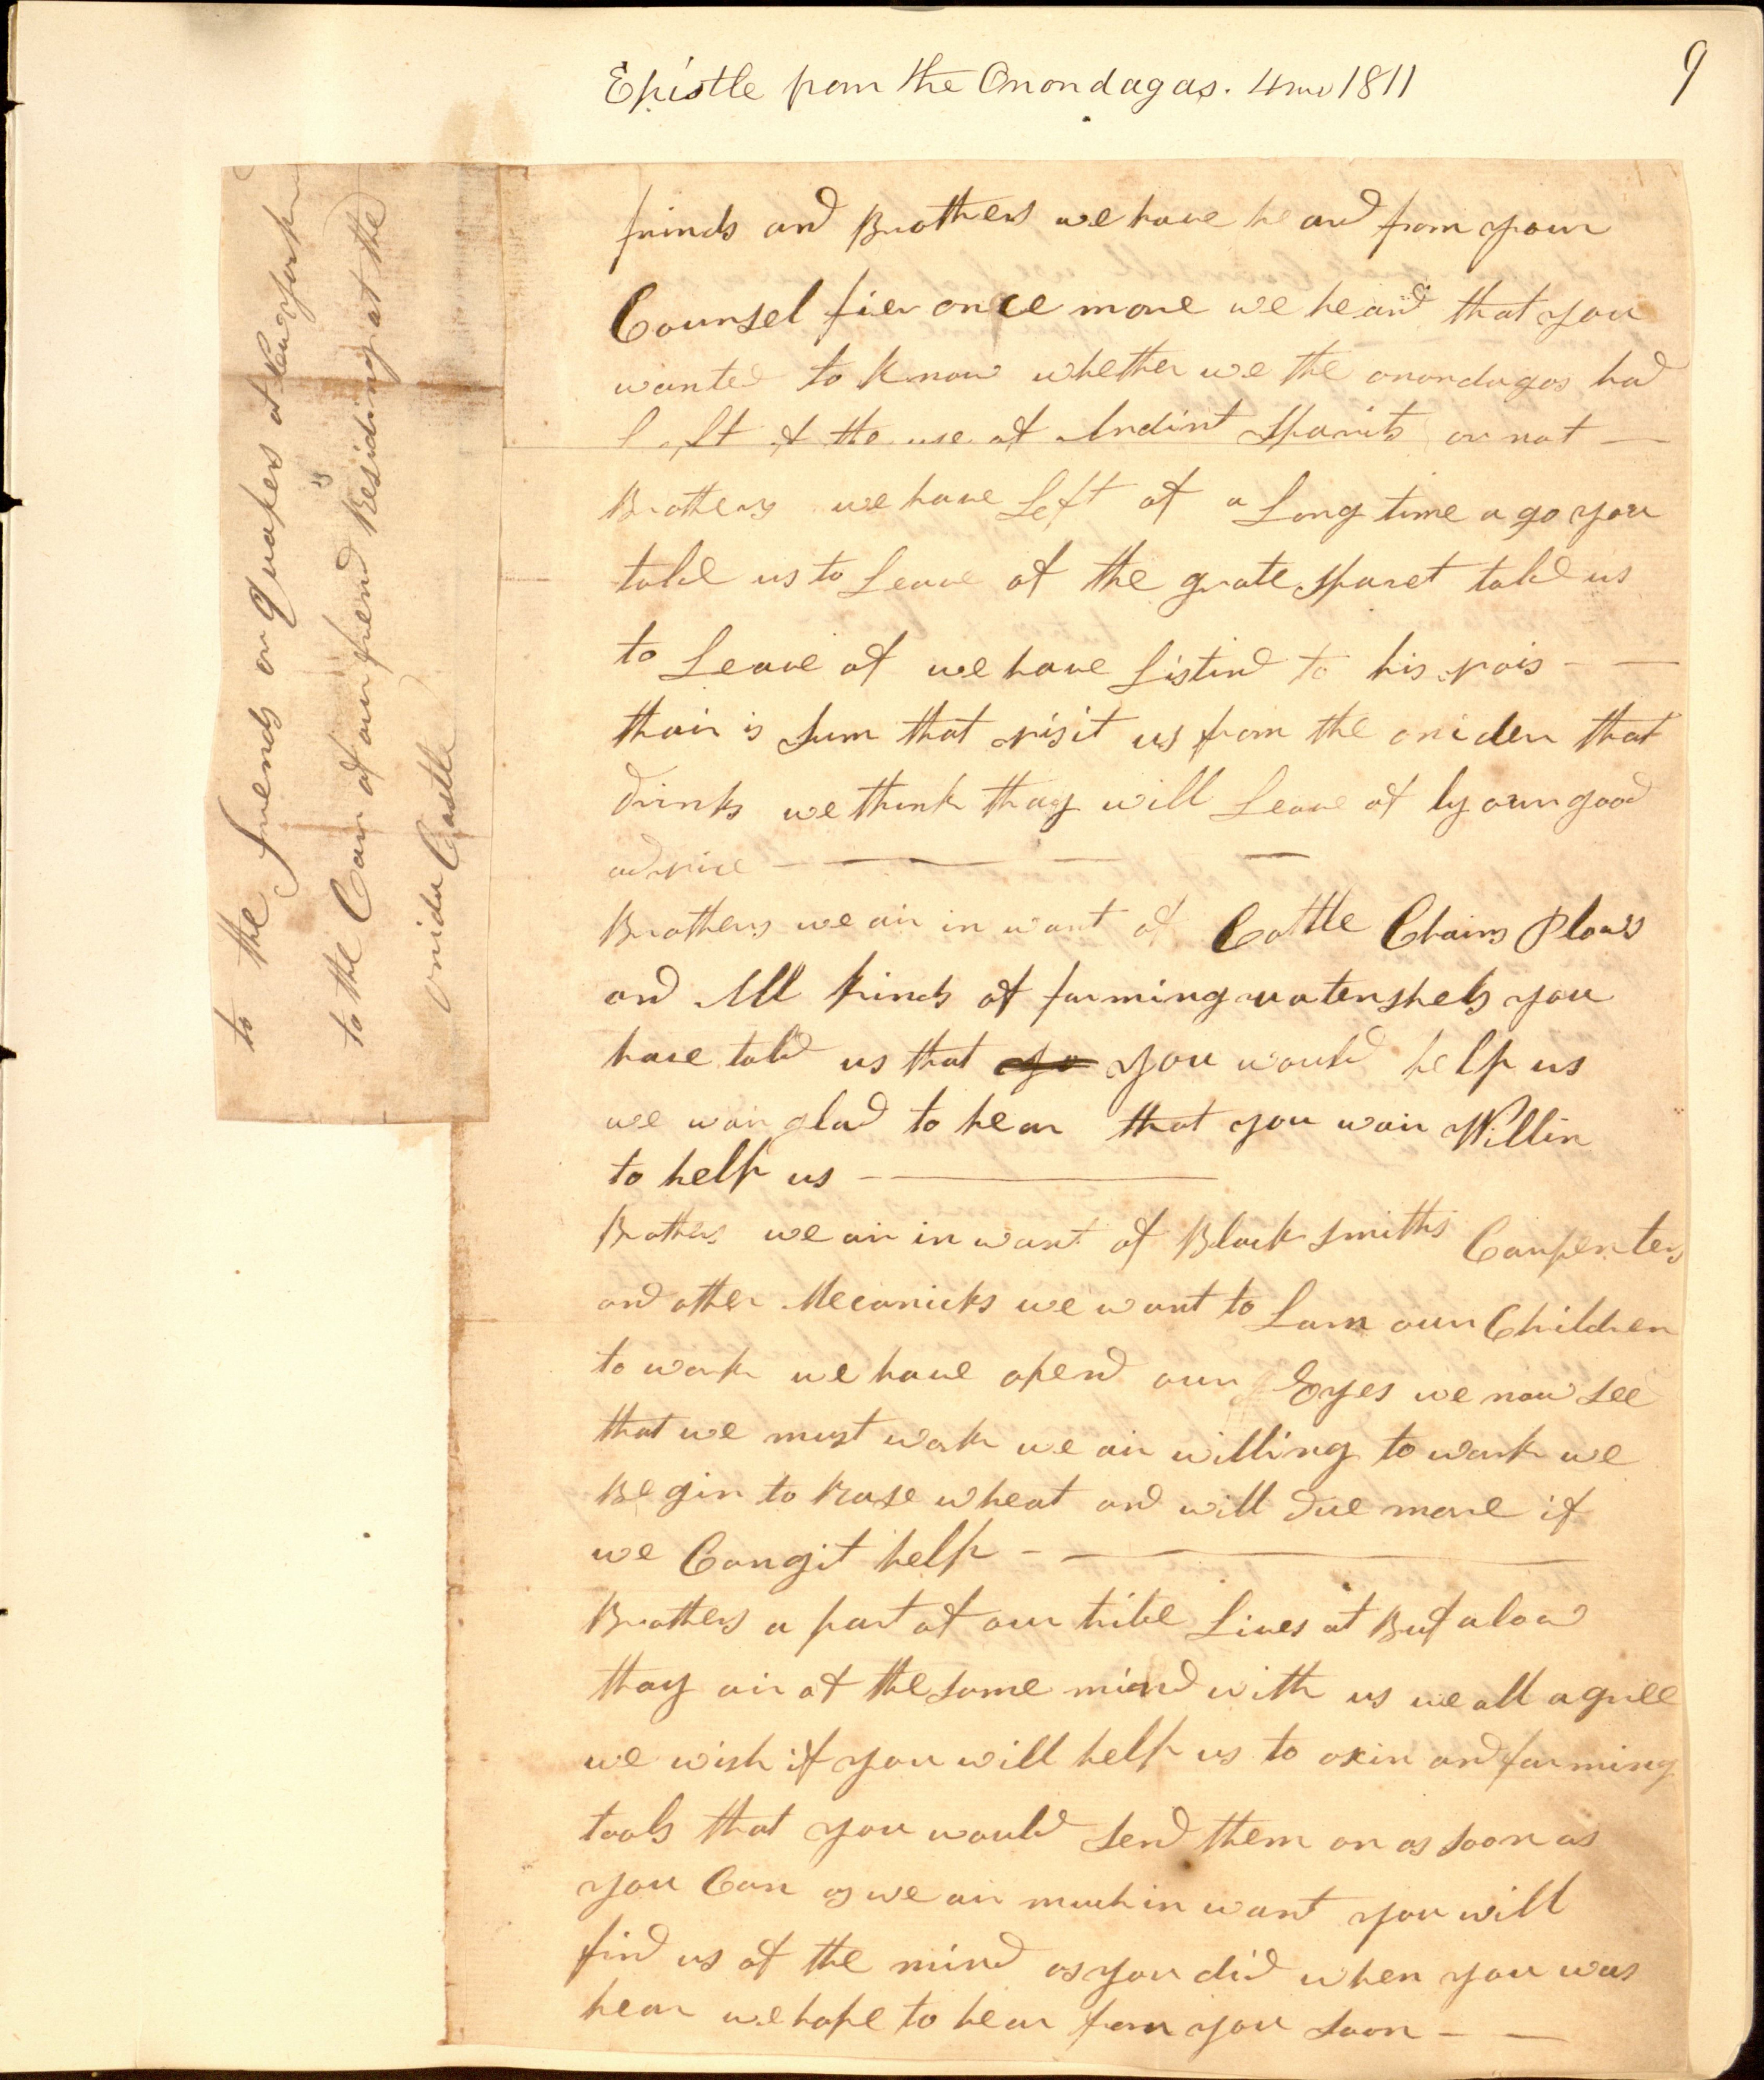 Epistle from the Onondagas. 4mo 1811
9
frinds and Brothers we have heard from your
Counsel fier once more we heard that you
wanted to know whether we the onondagos had
left of the use of Ardint Sparits or not —
Brothers we have Left of a Long time ago you
told us to Leave of the grate Sparet told us
to Leave of we have Listind to his vois — —
thair is Sum that visit us from the oniden that
drinks we think thay will Leave of by our good
advice — — — —
Brothers we air in want of Cattle Chains Plows
and All kinds of farming utenshels you
have told us that yo you would help us
we wair glad to hear that you wair Willin
to help us — —
Brothers we air in want of Black smiths Carpenters
and other Mecanicks we want to Larn our Children
to work we have opend our Eyes we now see
that we must work we air willing to work we
Begin to Rase wheat and will due more if
we Can git help — —
Brothers a part of our tribe Lives at Bufalow
thay air of the same mind with us we all agree
we wish if you will help us to oxin and farming
tools that you would send them on as soon as
you Can as we air much in want you will
find us of the mind as you did when you was
hear we hope to hear from you soon — —
to the friends or Quakers at New york
to the Care of our friend is Residing at the
onida Castle